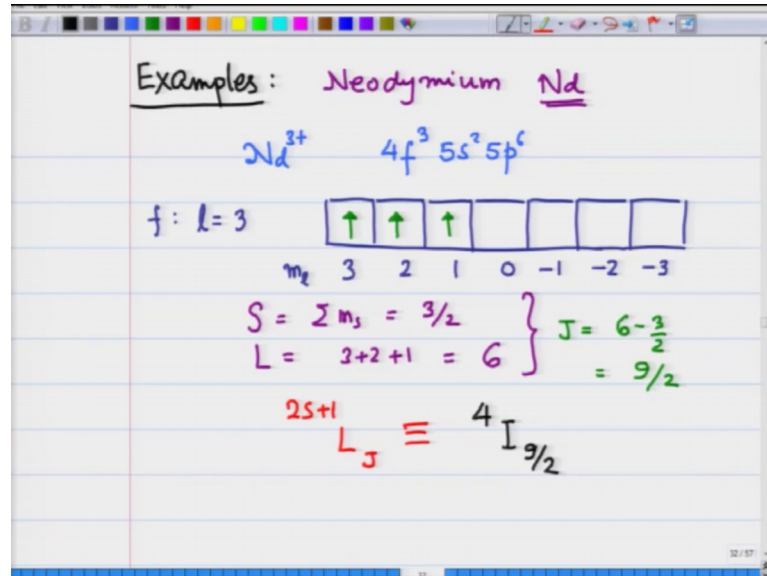 Examples: Neodymium Nd
Nd³⁺ 4f³ 5s² 5p⁶
f : l = 3 ↑ ↑ ↑
mₗ 3 2 1 0 -1 -2 -3
S = Σ mₛ = 3/2
L = 3+2+1 = 6
J = 6 - 3/2
= 9/2
2S+1 L J ≡ ⁴I₉/₂
32/57